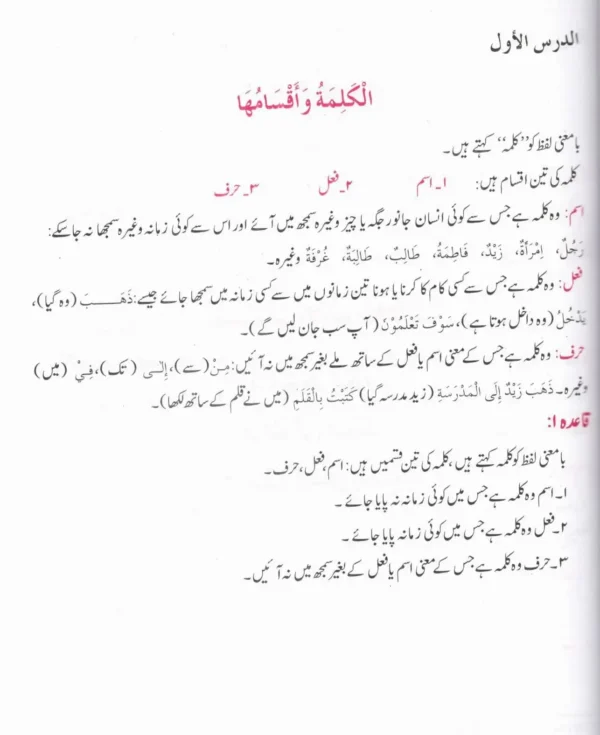 الدرس الأول
الْكَلِمَةُ وَأَقْسَامُهَا
بامعنی لفظ کو ”کلمہ“ کہتے ہیں۔
کلمہ کی تین اقسام ہیں: ۱۔ اسم ۲۔ فعل ۳۔ حرف
اسم: وہ کلمہ ہے جس سے کوئی انسان جانور جگہ یا چیز وغیرہ سمجھ میں آئے اور اس سے کوئی زمانہ وغیرہ سمجھا نہ جاسکے:
رَجُلٌ، اِمْرَأَةٌ، زَيْدٌ، فَاطِمَةُ، طَالِبٌ، طَالِبَةٌ، غُرْفَةٌ وغیرہ۔
فعل: وہ کلمہ ہے جس سے کسی کام کا کرنا یا ہونا تین زمانوں میں سے کسی زمانہ میں سمجھا جائے جیسے: ذَهَبَ (وہ گیا)،
يَدْخُلُ (وہ داخل ہوتا ہے)، سَوْفَ تَعْلَمُوْنَ (آپ سب جان لیں گے)۔
حرف: وہ کلمہ ہے جس کے معنی اسم یا فعل کے ساتھ ملے بغیر سمجھ میں نہ آئیں: مِنْ (سے)، إِلٰى (تک)، فِيْ (میں)
وغیرہ۔ ذَهَبَ زَيْدٌ إِلَى الْمَدْرَسَةِ (زید مدرسہ گیا) كَتَبْتُ بِالْقَلَمِ (میں نے قلم کے ساتھ لکھا)۔
قاعدہ ۱:
بامعنی لفظ کو کلمہ کہتے ہیں، کلمہ کی تین قسمیں ہیں: اسم، فعل، حرف۔
۱۔ اسم وہ کلمہ ہے جس میں کوئی زمانہ نہ پایا جائے۔
۲۔ فعل وہ کلمہ ہے جس میں کوئی زمانہ پایا جائے۔
۳۔ حرف وہ کلمہ ہے جس کے معنی اسم یا فعل کے بغیر سمجھ میں نہ آئیں۔